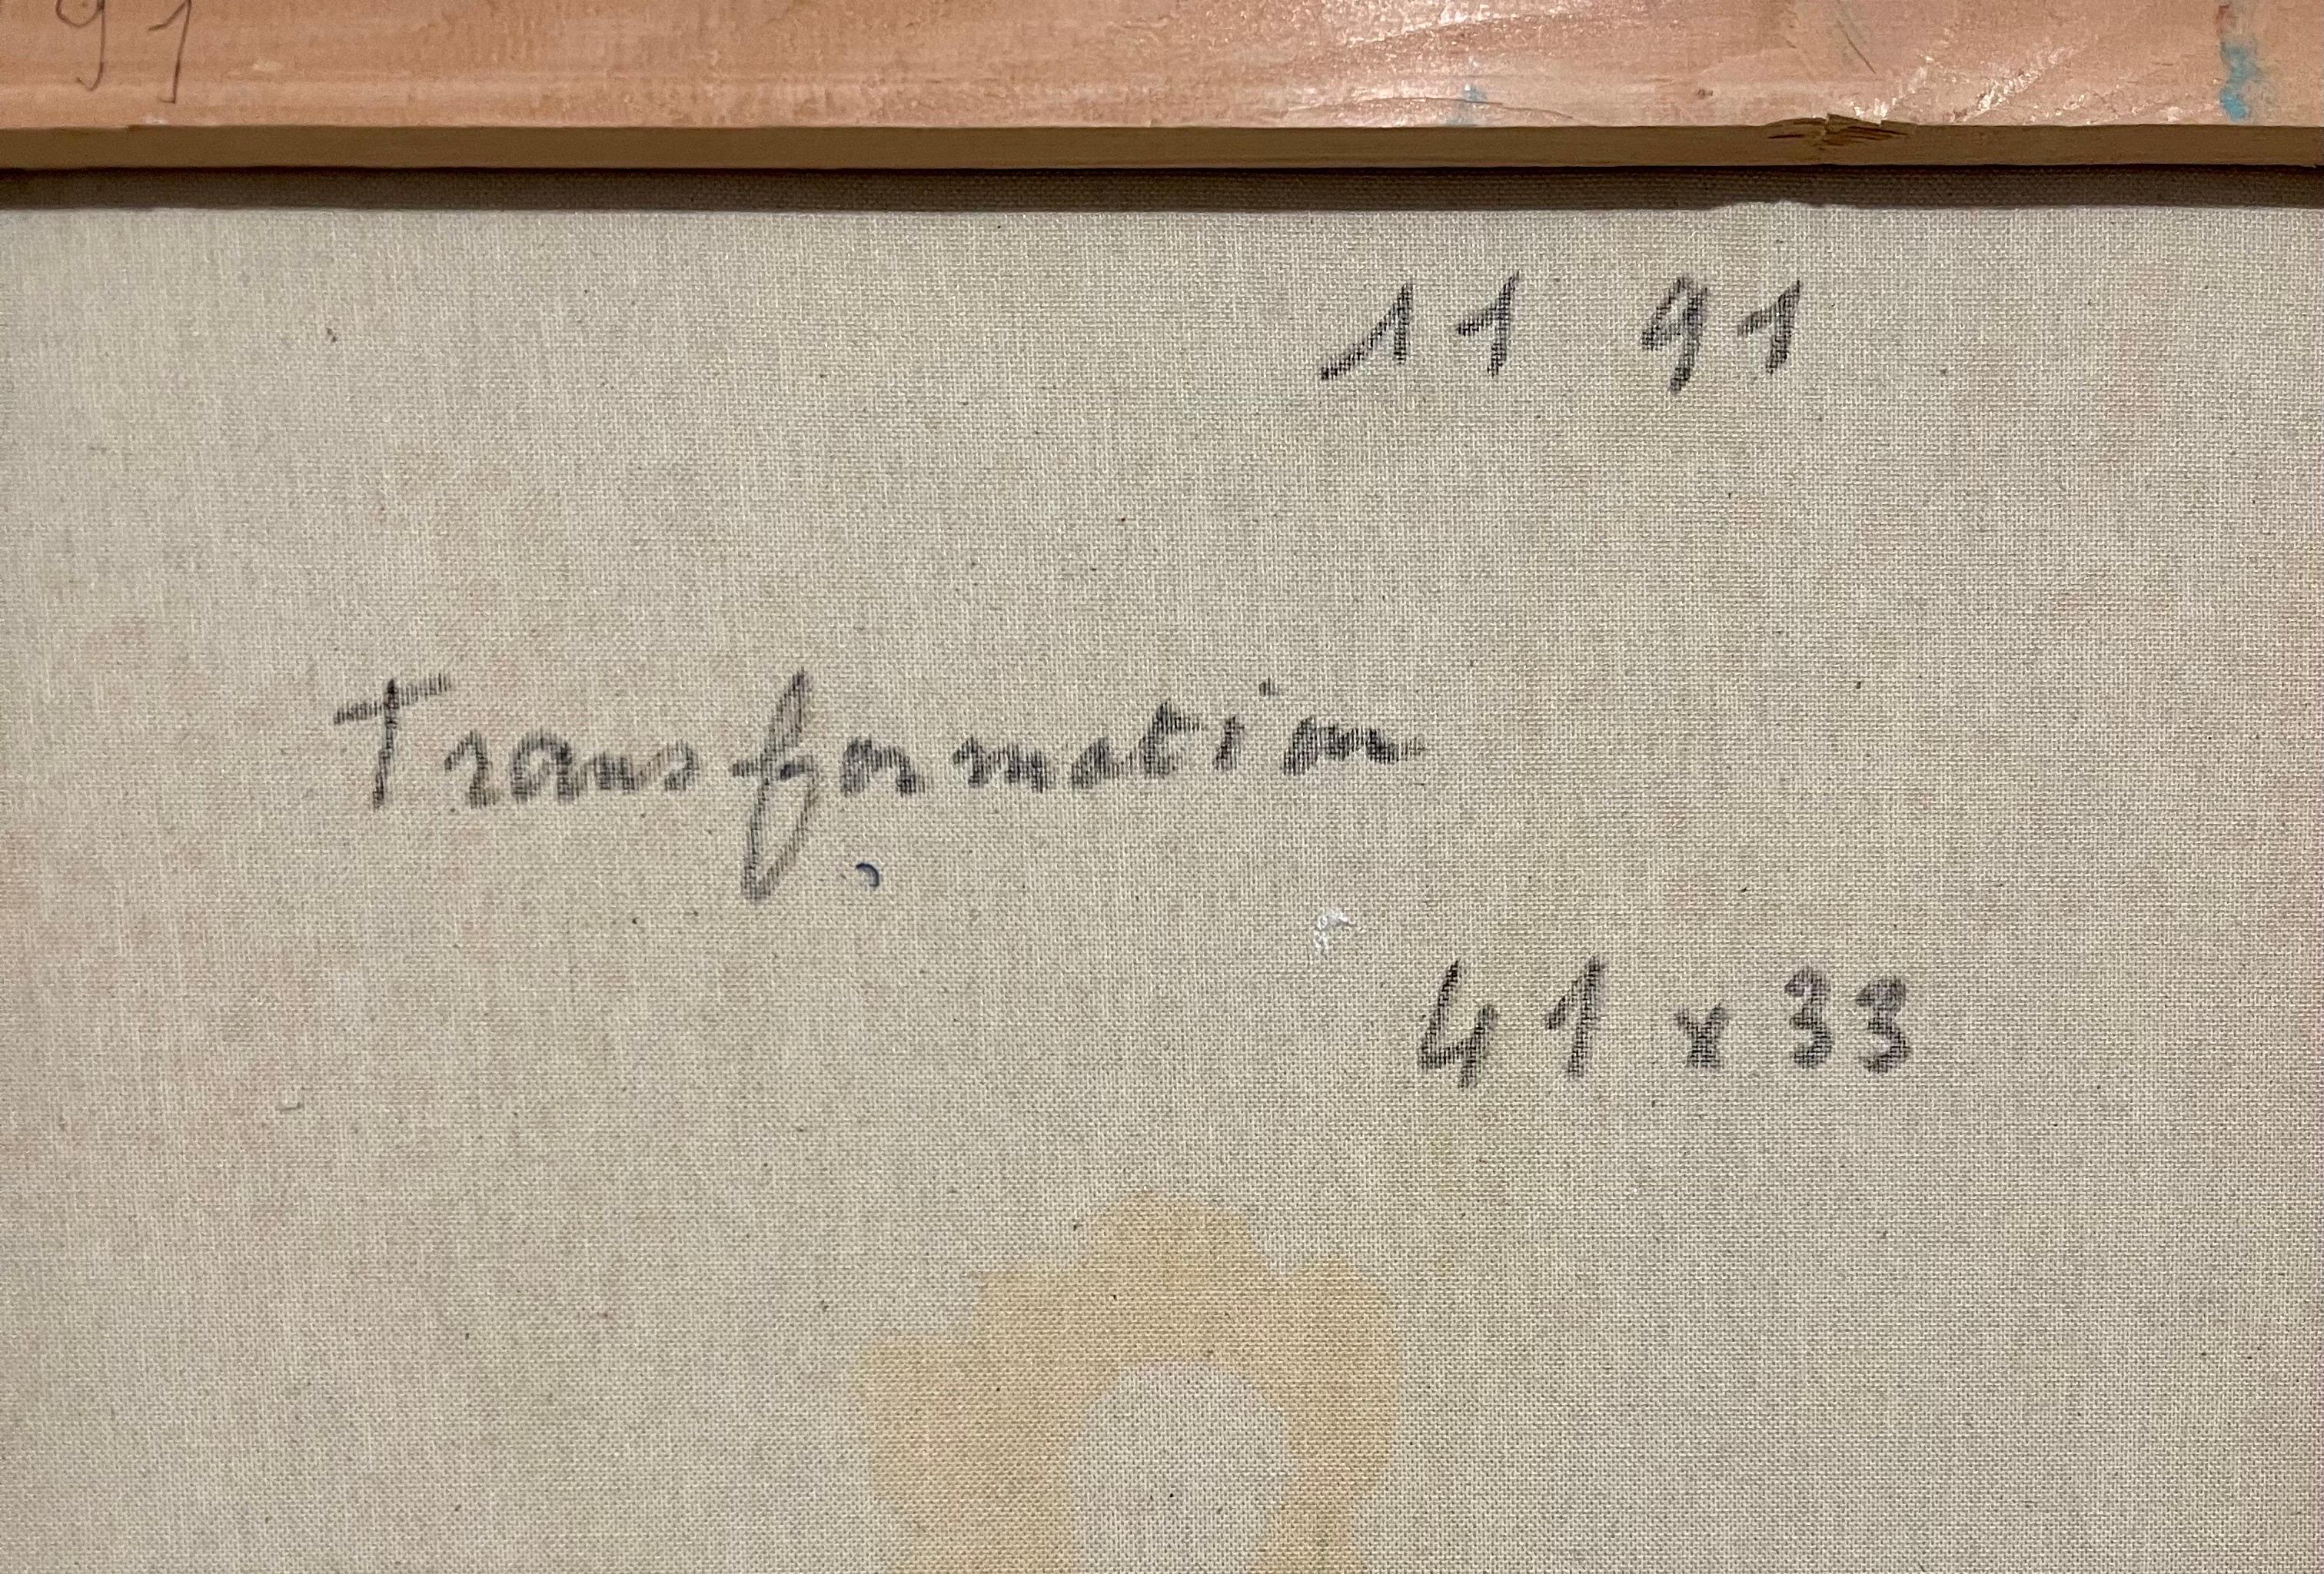 91
11 91
Transformation
41 x 33